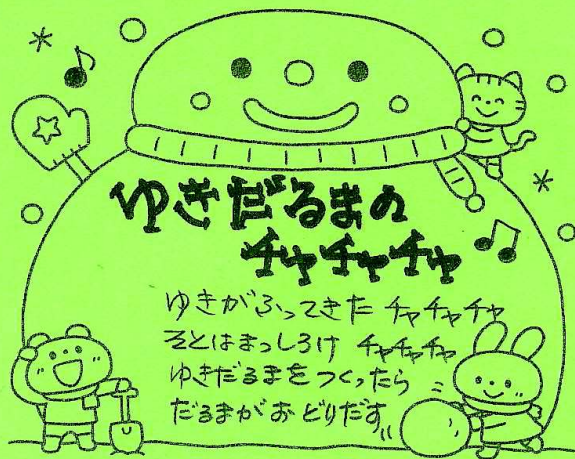 ゆきだるまの
チャチャチャ
ゆきがふってきた チャチャチャ
そとはまっしろけ チャチャチャ
ゆきだるまをつくったら
だるまがおどりだす